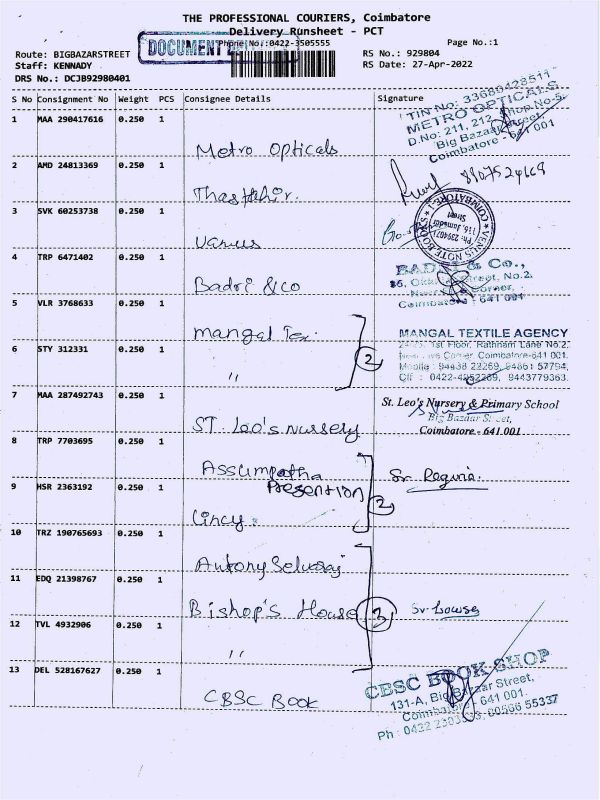 THE PROFESSIONAL COURIERS, Coimbatore
Delivery Runsheet - PCT
DOCUMENT
Phone No.:0422-3505555
Page No.:1
Route: BIGBAZARSTREET
RS No.: 929804
Staff: KENNADY
RS Date: 27-Apr-2022
DRS No.: DCJB92980401
S No Consignment No Weight PCS Consignee Details Signature
1 MAA 290417616 0.250 1 Metro Opticals
TIN No: 33680428511
METRO OPTICALS
D.No: 211, 212, Shop No-5,
Big Bazaar Street,
Coimbatore - 641 001
2 AMD 24813369 0.250 1
3 SVK 60253738 0.250 1
VENUS NOTE BOOKS
116, Jamedar
Street
COIMBATORE-1
4 TRP 6471402 0.250 1 Badri & co
BADRI & Co.,
Street, No.2,
Corner,
Coimbatore - 641 001
5 VLR 3768633 0.250 1 Mangal Tex.
MANGAL TEXTILE AGENCY
1st Floor, Rathnam Lane No.2,
Corner Coimbatore-641 001.
Mobile : 94438 22269, 94861 57794,
Off : 0422-4952269, 9443779363.
6 STY 312331 0.250 1 " 2
7 MAA 287492743 0.250 1 ST. Leo's nursery
St. Leo's Nursery & Primary School
Big Bazaar Street,
Coimbatore - 641 001
8 TRP 7703695 0.250 1 Assumpatha
Presention
Sr. Regina.
9 HSR 2363192 0.250 1 Cincy. 2
10 TRZ 190765693 0.250 1 Antony Selvaraj
11 EDQ 21398767 0.250 1 Bishop's House 3
12 TVL 4932906 0.250 1 "
13 DEL 528167627 0.250 1 CBSC Book
CBSC BOOK SHOP
131-A, Big Bazaar Street,
Coimbatore - 641 001.